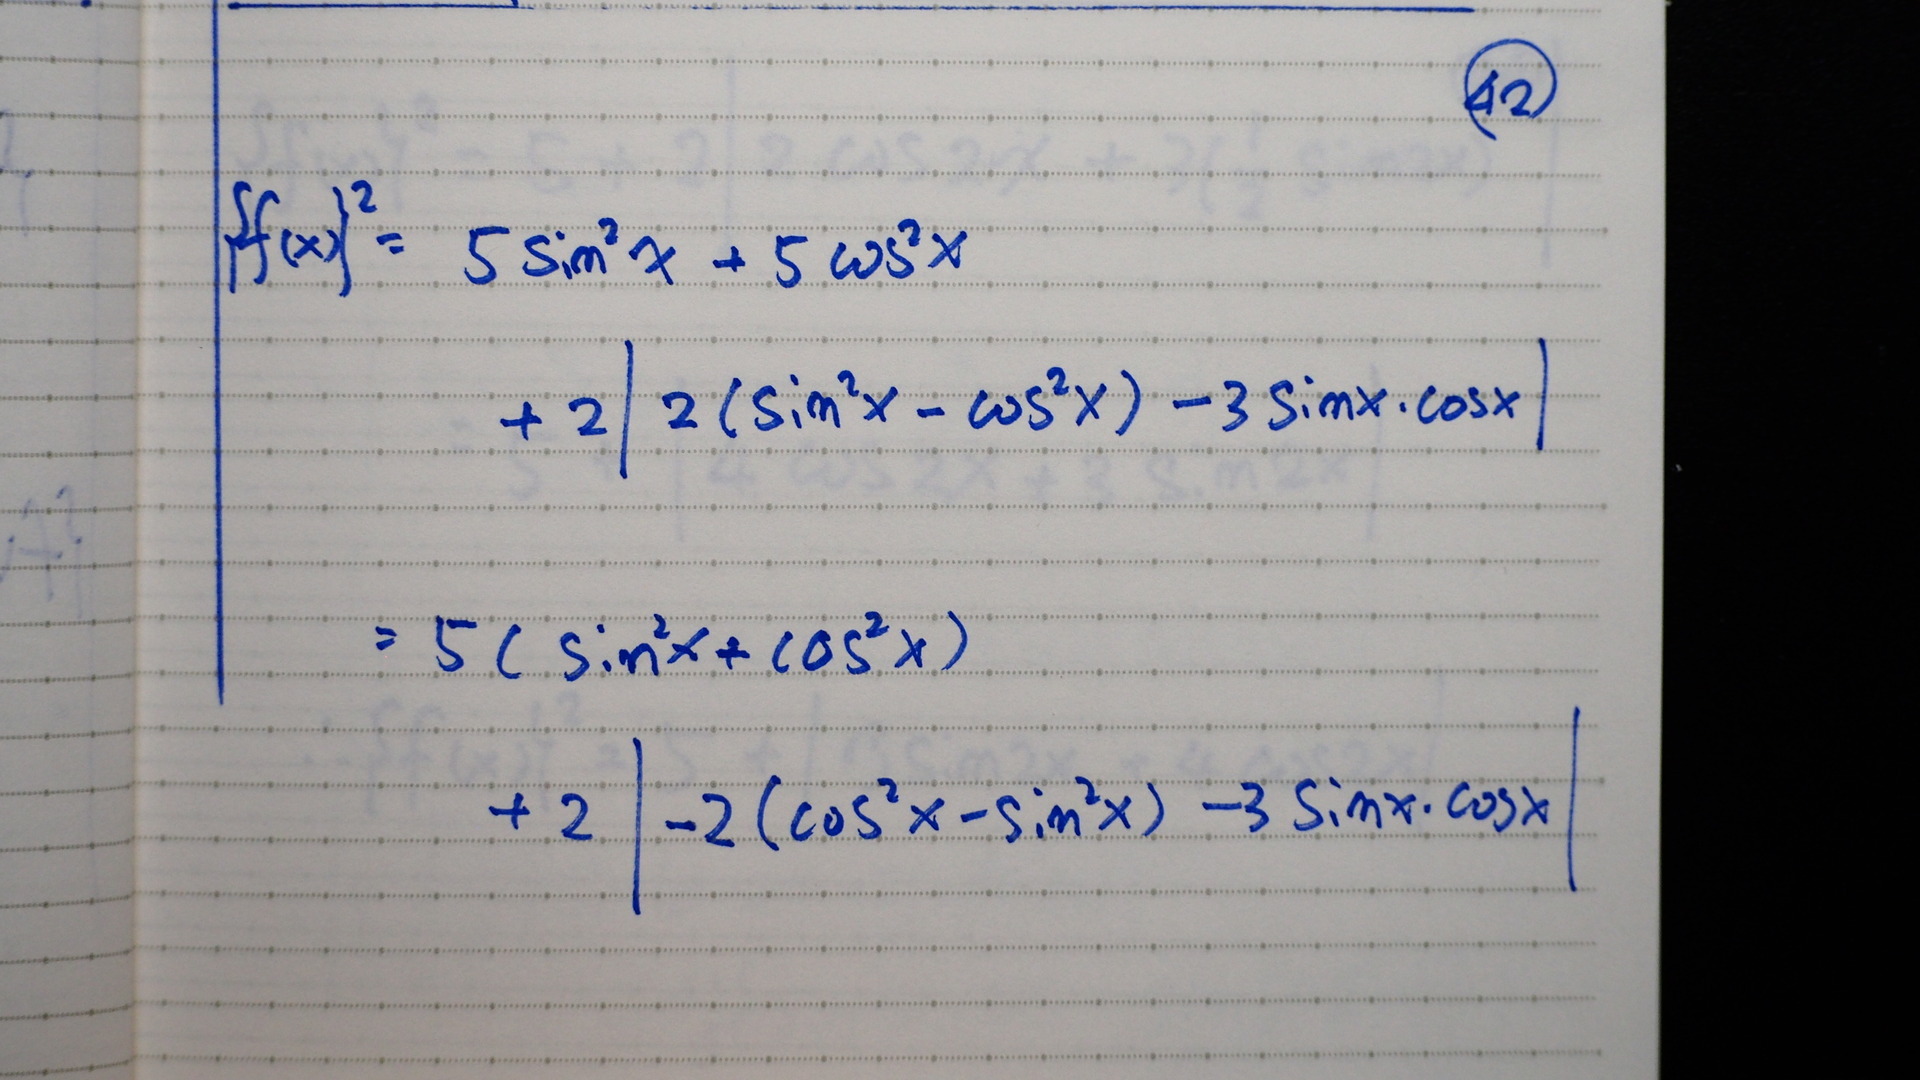 42
{f(x)}² = 5 sin²x + 5 cos²x
+ 2 | 2 (sin²x - cos²x) - 3 sinx · cosx |
= 5 ( sin²x + cos²x )
+ 2 | -2 (cos²x - sin²x) - 3 sinx · cosx |